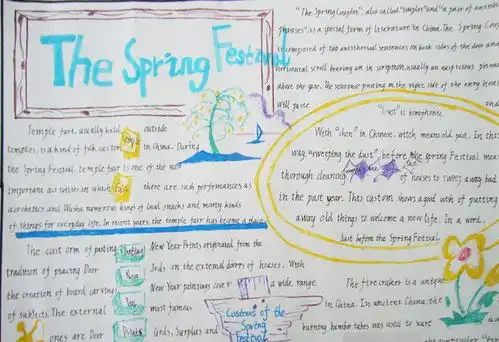 The Spring Festival
"The Spring Couplet", also called "couplet" and "a pair of antithetical
phrases", is a special form of literature in China. The Spring Couplet
is composed of two antithetical sentences on both sides of the door and
horizontal scroll bearing an inscription, usually an auspicious phrase
above the gate. The sentence pasting on the right side of the entry
will paste
Temple fair, usually held outside
temples, is a kind of folk custom in China. During
Temple
the Spring Festival, temple fair is one of the most
important activities in which there are such performances as
fair
acrobatics and Wushu, numerous kinds of local snacks and many kinds
of things for everyday life. In recent years, the temple fair has become a place
"Dust" is homophonic
With "chen" in Chinese, witch means old past. In this
way, "sweeping the dust" before the spring Festival means
thorough cleaning of houses to sweep away bad
in the past year. This custom shows a good wish of putting
away old things to welcome a new life. In a word,
Just before the Spring Festival
The custom of pasting New Year Prints originated from the
Pasting
tradition of placing Door Gods on the external doors of houses. With
New
the creation of board carvings, New Year paintings cover a wide range
Year
of subjects. The external most famous
ones are Door Gods, Surplus and
Prints
Customs of the
Spring
Festival
The firecracker is a unique
in China. In ancient China, the
burning bamboo tubes was used to scare